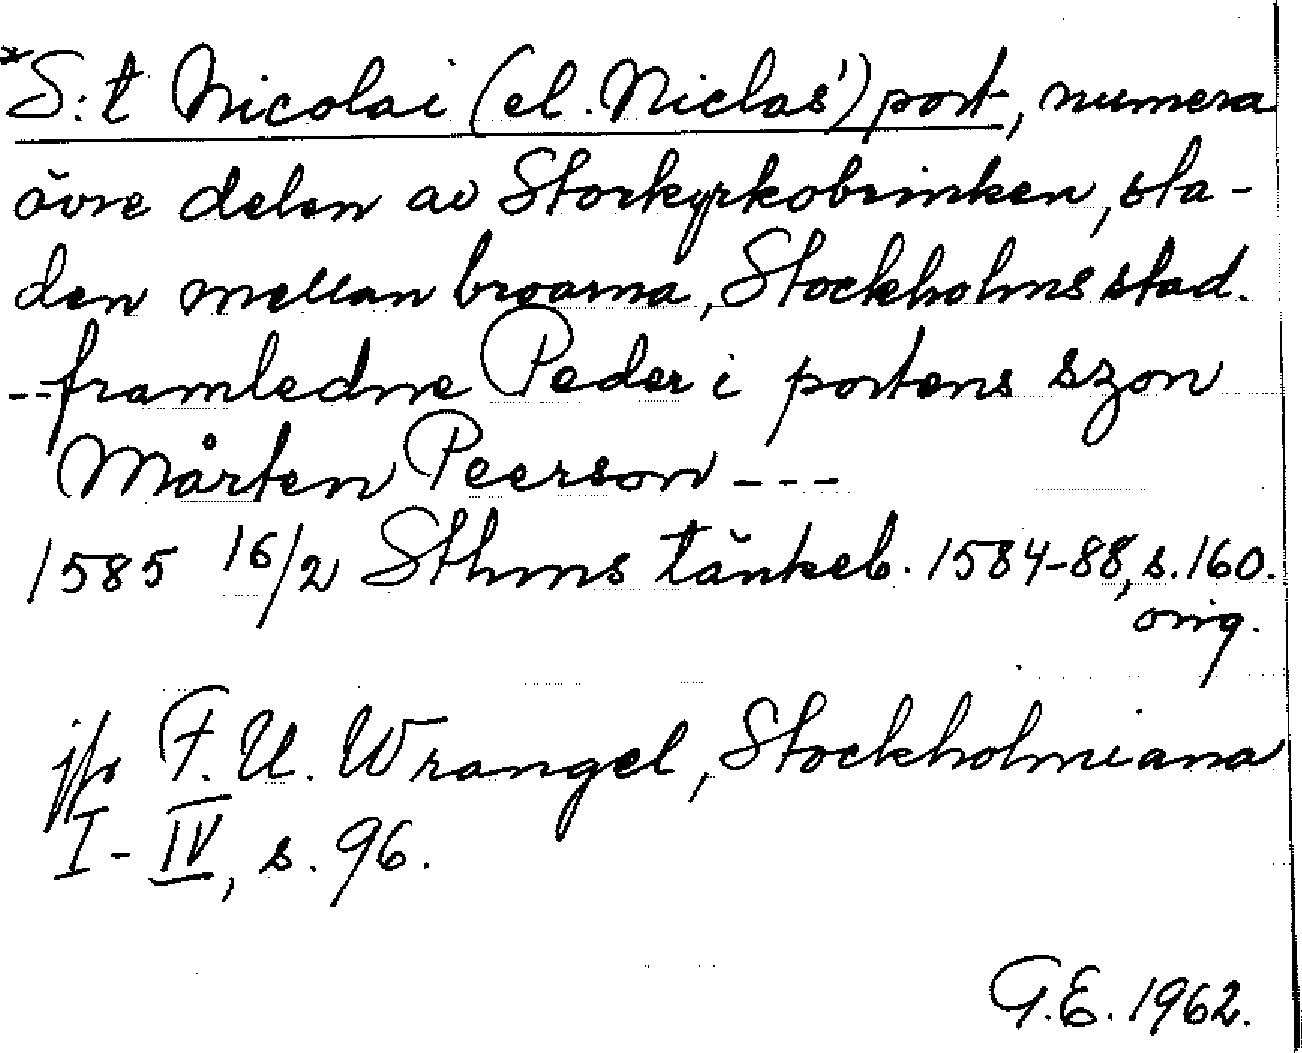 *S:t Nicolai (el. Niclas') port, numera
övre delen av Storkyrkobrinken, sta-
den mellan broarna, Stockholms stad.
--framledne Peder i portens szon
Mårten Peerson ---
1585 16/2 Sthms tänkeb. 1584-88, s. 160.
orig.
jfr F. U. Wrangel, Stockholmiana
I-IV, s. 96.
G.E. 1962.